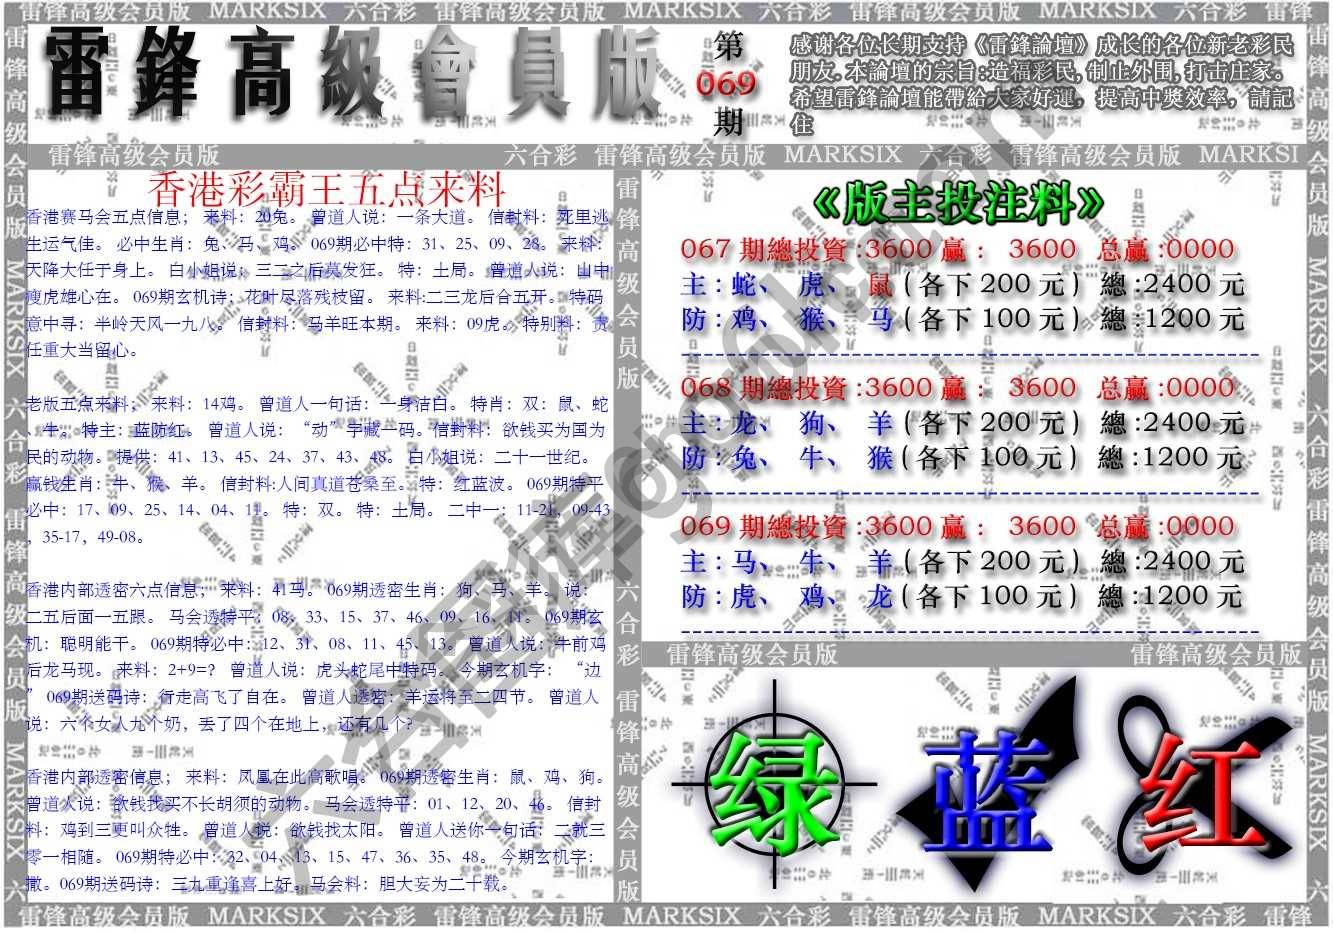 雷锋高级会员版 MARKSIX 六合彩 雷锋高级会员版 MARKSIX 六合彩 雷锋高级会员版 MARKSIX 六合彩 雷锋
雷鋒高級會員版
第
069
期
感谢各位长期支持《雷鋒論壇》成长的各位新老彩民
朋友.本論壇的宗旨:造福彩民,制止外围,打击庄家。
希望雷鋒論壇能帶給大家好運，提高中獎效率，請記
住
雷锋高级会员版 六合彩 雷锋高级会员版 MARKSIX 六合彩 雷锋高级会员版 MARKSI
香港彩霸王五点来料
香港赛马会五点信息； 来料：20兔。 曾道人说：一条大道。 信封料：死里逃
生运气佳。 必中生肖：兔、马、鸡。 069期必中特：31、25、09、28。 来料：
天降大任于身上。 白小姐说：三二之后莫发狂。 特：土局。 曾道人说：山中
瘦虎雄心在。 069期玄机诗：花叶尽落残枝留。 来料:二三龙后合五开。 特码
意中寻：半岭天风一九八。 信封料：马羊旺本期。 来料：09虎。 特别料：责
任重大当留心。
老版五点来料； 来料：14鸡。 曾道人一句话：一身洁白。 特肖：双：鼠、蛇
、牛。 特主：蓝防红。 曾道人说：“动”字藏一码。信封料：欲钱买为国为
民的动物。 提供：41、13、45、24、37、43、48。 白小姐说：二十一世纪。
赢钱生肖：牛、猴、羊。 信封料:人间真道苍桑至。 特：红蓝波。 069期特平
必中：17、09、25、14、04、11。 特：双。 特：土局。 二中一：11-21，09-43
，35-17，49-08。
香港内部透密六点信息； 来料：41马。 069期透密生肖：狗、马、羊。 说：
二五后面一五跟。 马会透特平：08、33、15、37、46、09、16、11。 069期玄
机：聪明能干。 069期特必中：12、31、08、11、45、13。 曾道人说：牛前鸡
后龙马现。 来料：2+9=？ 曾道人说：虎头蛇尾中特码。 今期玄机字：“边
” 069期送码诗：行走高飞了自在。 曾道人透密：羊运将至二四节。 曾道人
说：六个女人九个奶，丢了四个在地上，还有几个？
香港内部透密信息； 来料：凤凰在此高歌唱。 069期透密生肖：鼠、鸡、狗。
曾道人说：欲钱找买不长胡须的动物。 马会透特平：01、12、20、46。 信封
料：鸡到三更叫众牲。 曾道人说：欲钱找太阳。 曾道人送你一句话：二就三
零一相随。 069期特必中：32、04、13、15、47、36、35、48。 今期玄机字：
撒。069期送码诗：三九重逢喜上好。 马会料：胆大妄为二十载。
《版主投注料》
067 期總投資 :3600 赢 : 3600 总赢 :0000
主 : 蛇、 虎、 鼠 ( 各下 200 元 ) 總 :2400 元
防 : 鸡、 猴、 马 ( 各下 100 元 ) 總 :1200 元
068 期總投資 :3600 赢 : 3600 总赢 :0000
主 : 龙、 狗、 羊 ( 各下 200 元 ) 總 :2400 元
防 : 兔、 牛、 猴 ( 各下 100 元 ) 總 :1200 元
069 期總投資 :3600 赢 : 3600 总赢 :0000
主 : 马、 牛、 羊 ( 各下 200 元 ) 總 :2400 元
防 : 虎、 鸡、 龙 ( 各下 100 元 ) 總 :1200 元
雷锋高级会员版 雷锋高级会员版
绿 蓝 红
雷锋高级会员版 MARKSIX 六合彩 雷锋高级会员版 MARKSIX 六合彩 雷锋高级会员版 MARKSIX 六合彩 雷锋